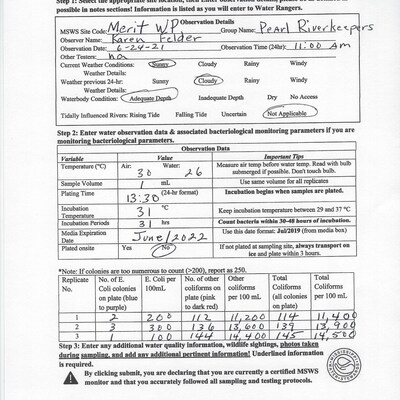 Step 1: Select the appropriate site location, then enter observation details, provide as much detail as
possible in notes sections! Information is listed as you will enter to Water Rangers.
Observation Details
MSWS Site Code: Merit WP Group Name: Pearl Riverkeepers
Observer Name: Karen Felder
Observation Date: 6-24-21 Observation Time (24hr): 11:00 Am
Other Testers: na
Current Weather Conditions: Sunny Cloudy Rainy Windy
Weather Details:
Weather previous 24-hr: Sunny Cloudy Rainy Windy
Weather Details:
Waterbody Condition: Adequate Depth Inadequate Depth Dry No Access
Tidally Influenced Rivers: Rising Tide Falling Tide Uncertain Not Applicable
Step 2: Enter water observation data & associated bacteriological monitoring parameters if you are
monitoring bacteriological parameters.
Observation Data
Variable Value Important Tips
Temperature (°C) Air: 30 Water: 26 Measure air temp before water temp. Read with bulb
submerged if possible. Don't touch bulb.
Sample Volume 1 mL Use same volume for all replicates
Plating Time 13:30 (24-hr format) Incubation begins when samples are plated.
Incubation Temperature 31 °C Keep incubation temperature between 29 and 37 °C
Incubation Periods 31 hrs Count bacteria within 30-48 hours of incubation.
Media Expiration Date June/2022 Use this date format: Jul/2019 (from media box)
Plated onsite Yes No If not plated at sampling site, always transport on
ice and plate within 3 hours.
*Note: If colonies are too numerous to count (>200), report as 250.
Replicate No. No. of E. Coli colonies on plate (blue to purple) E. Coli per 100mL No. of other coliforms on plate (pink to dark red) Other coliforms per 100 mL Total Coliforms (all colonies on plate) Total Coliforms per 100 mL
1 2 200 112 11,200 114 11,400
2 3 300 136 13,600 139 13,900
3 1 100 144 14,400 145 14,500
Step 3: Enter any additional water quality information, wildlife sightings, photos taken
during sampling, and add any additional pertinent information! Underlined information
is required.
By clicking submit, you are declaring that you are currently a certified MSWS
monitor and that you accurately followed all sampling and testing protocols.